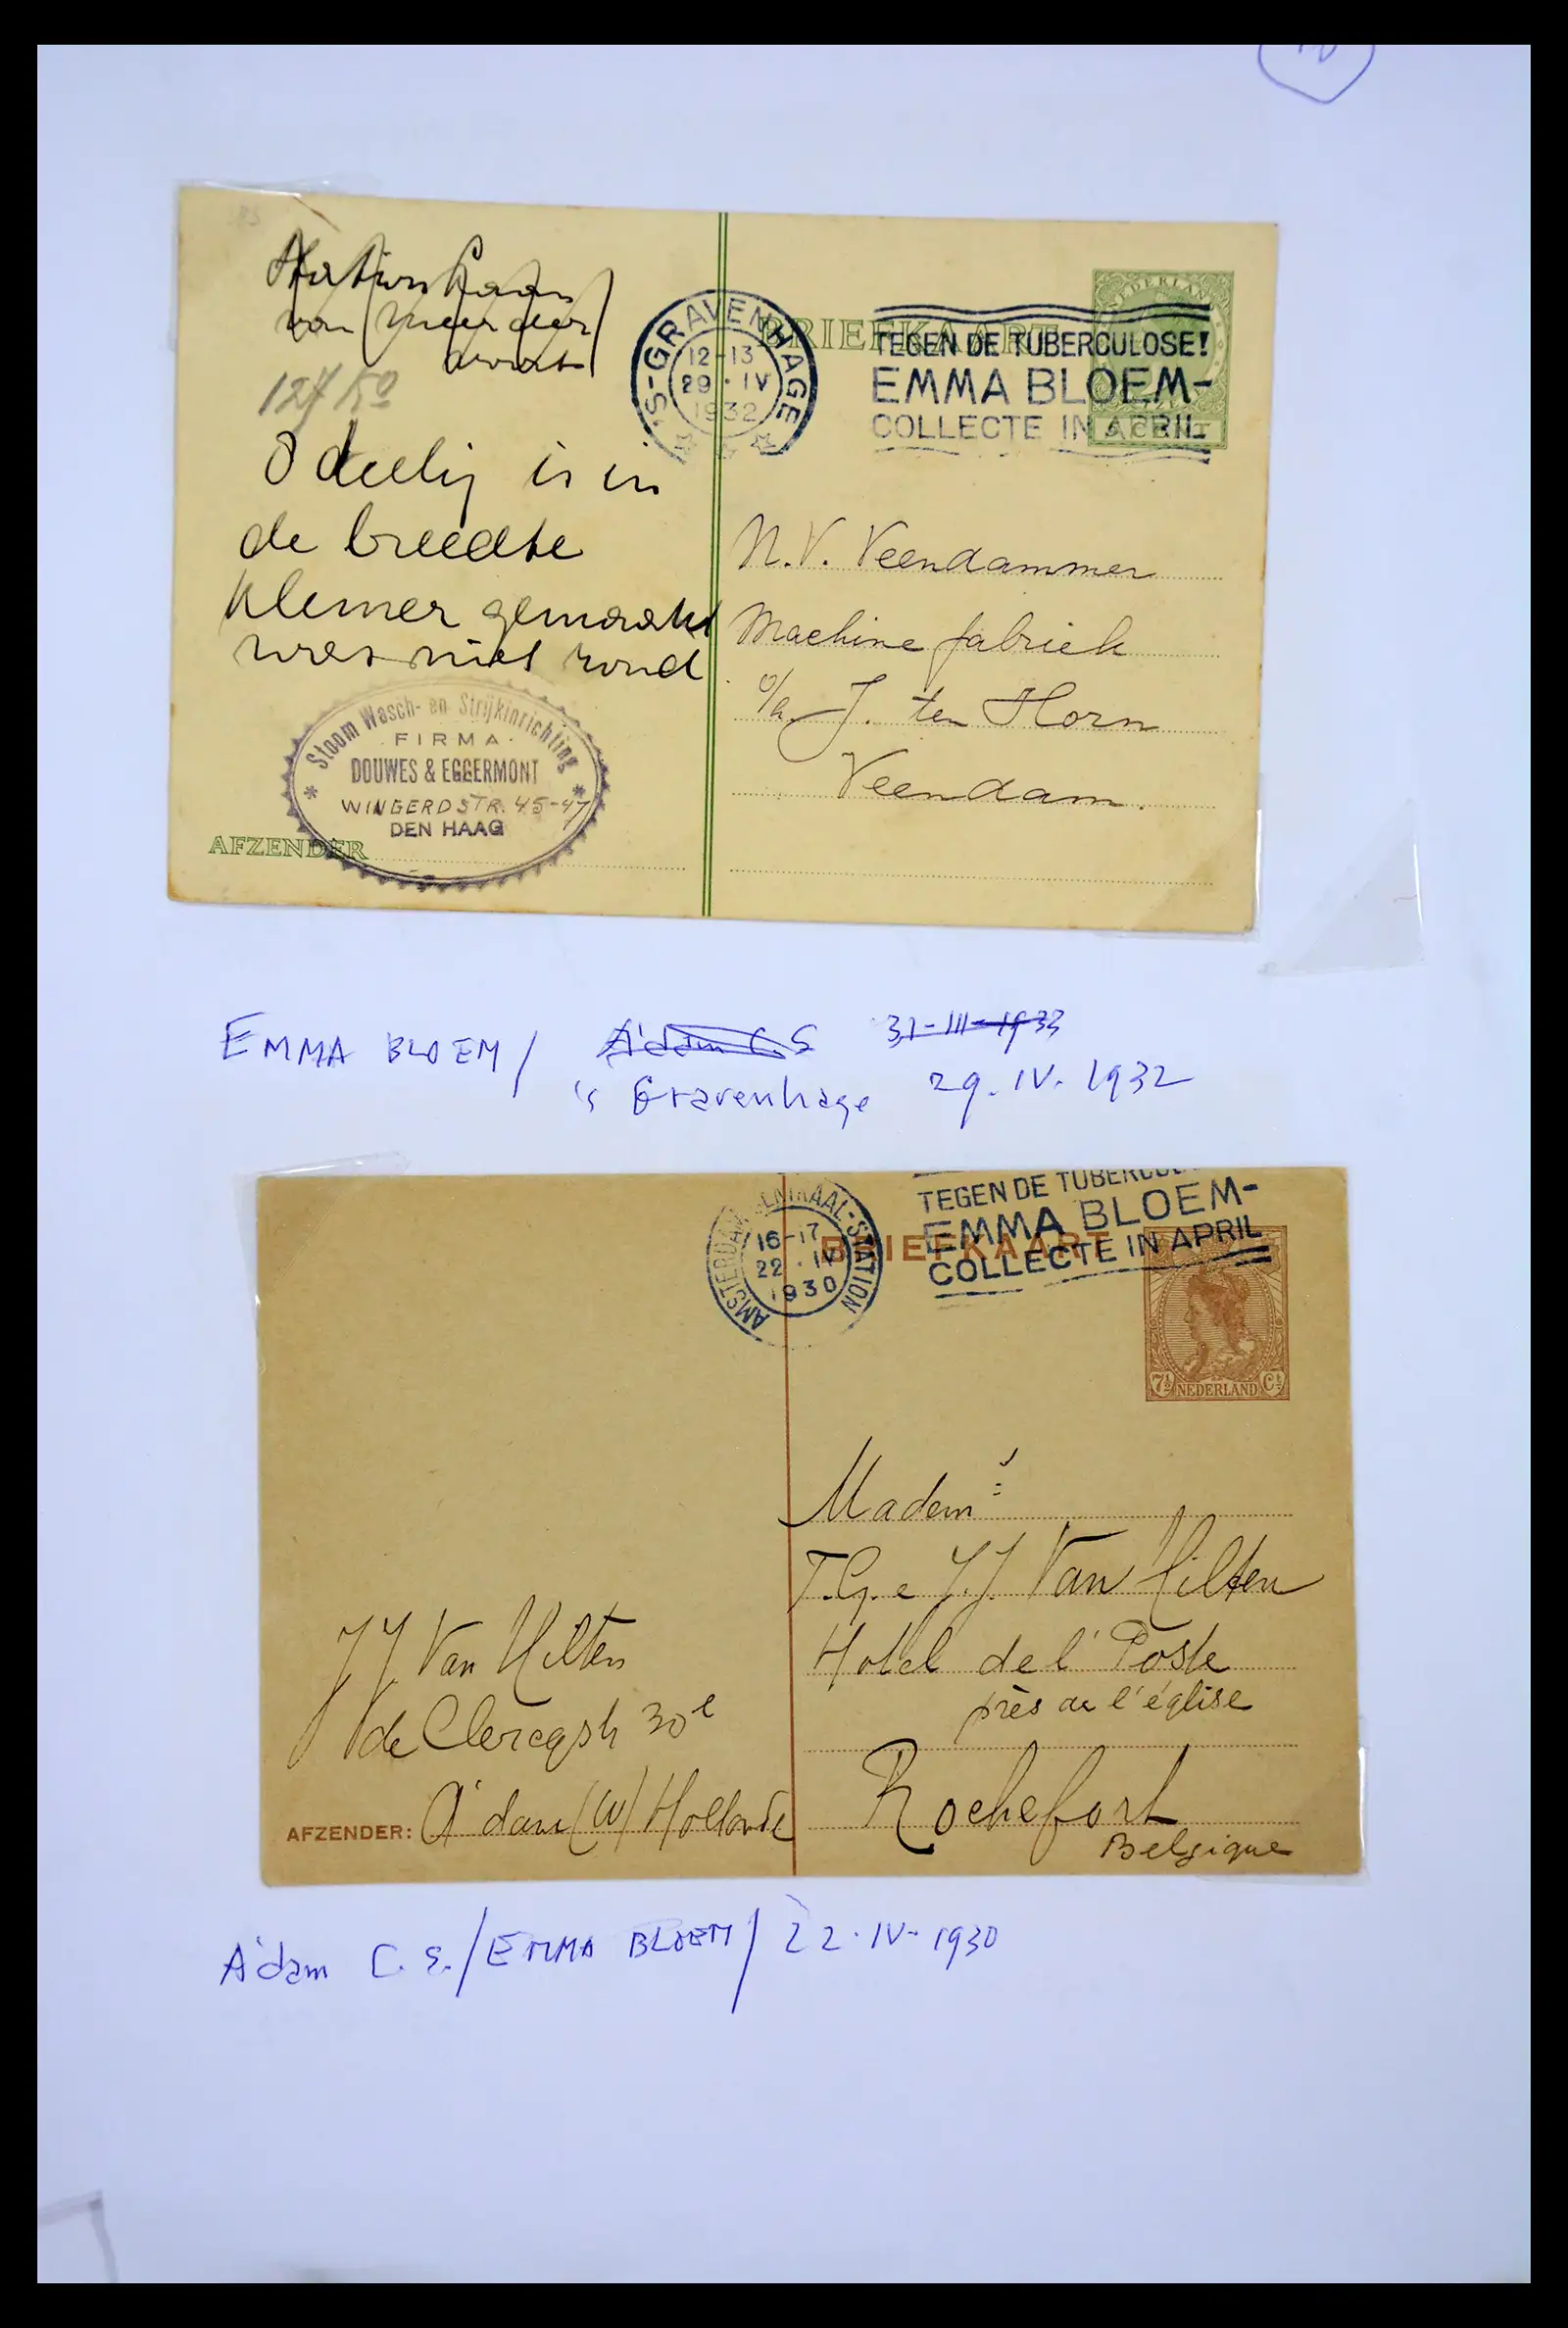 's-GRAVENHAGE
12-13
29 · IV
1932
BRIEFKAART
TEGEN DE TUBERCULOSE!
EMMA BLOEM-
COLLECTE IN APRIL
NEDERLAND
5 CENT
van
127 50
is in
de breedte
kleiner gemaakt
was niet rond
N.V. Veendammer
Machine fabriek
o/a. J. ten Horn
Veendam.
Stoom Wasch- en Strijkinrichting
FIRMA
DOUWES & EGGERMONT
WINGERDSTR. 45-47
DEN HAAG
AFZENDER
EMMA BLOEM / A'dam C.S 31-III-1933
's Gravenhage 29. IV. 1932
AMSTERDAM CENTRAAL-STATION
16-17
22 · IV
1930
BRIEFKAART
TEGEN DE
EMMA BLOEM-
COLLECTE IN APRIL
7½ NEDERLAND Ct
Madem
T.G. e J.J. Van Hilten
Hotel de l'Poste
près de l'église
Rochefort
Belgique
JJ Van Hilten
de Clercqstr 30
AFZENDER: A'dam (W) Hollande
A'dam C.S./EMMA BLOEM/22-IV-1930